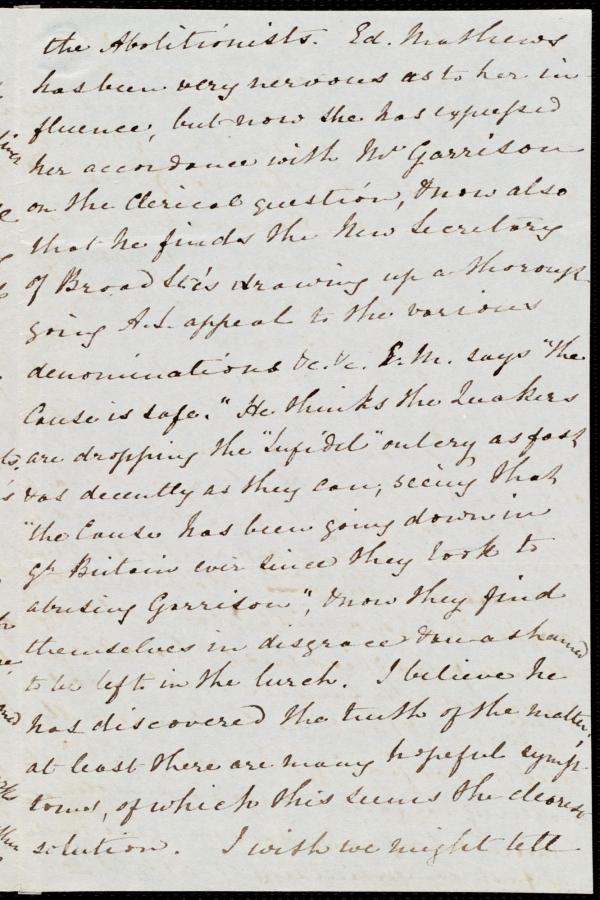 the Abolitionists. Ed. Mathews
has been very nervous as to her in-
fluence, but now she has expressed
her accordance with Mr Garrison
on the Clerical question, & now also
that he finds the New Secretary
of Broad St. is drawing up a thorough
going A.S. appeal to the various
denominations &c. &c. E.M. says "the
Cause is safe." He thinks the Quakers
are dropping the "Infidel" outcry as fast
& as decently as they can, seeing that
"the Cause has been going down in
Gt Britain ever since they took to
abusing Garrison", & now they find
themselves in disgrace & are ashamed
to be left in the lurch. I believe he
has discovered the truth of the matter,
at least there are many hopeful symp-
toms, of which this seems the clearest
solution. I wish we might tell